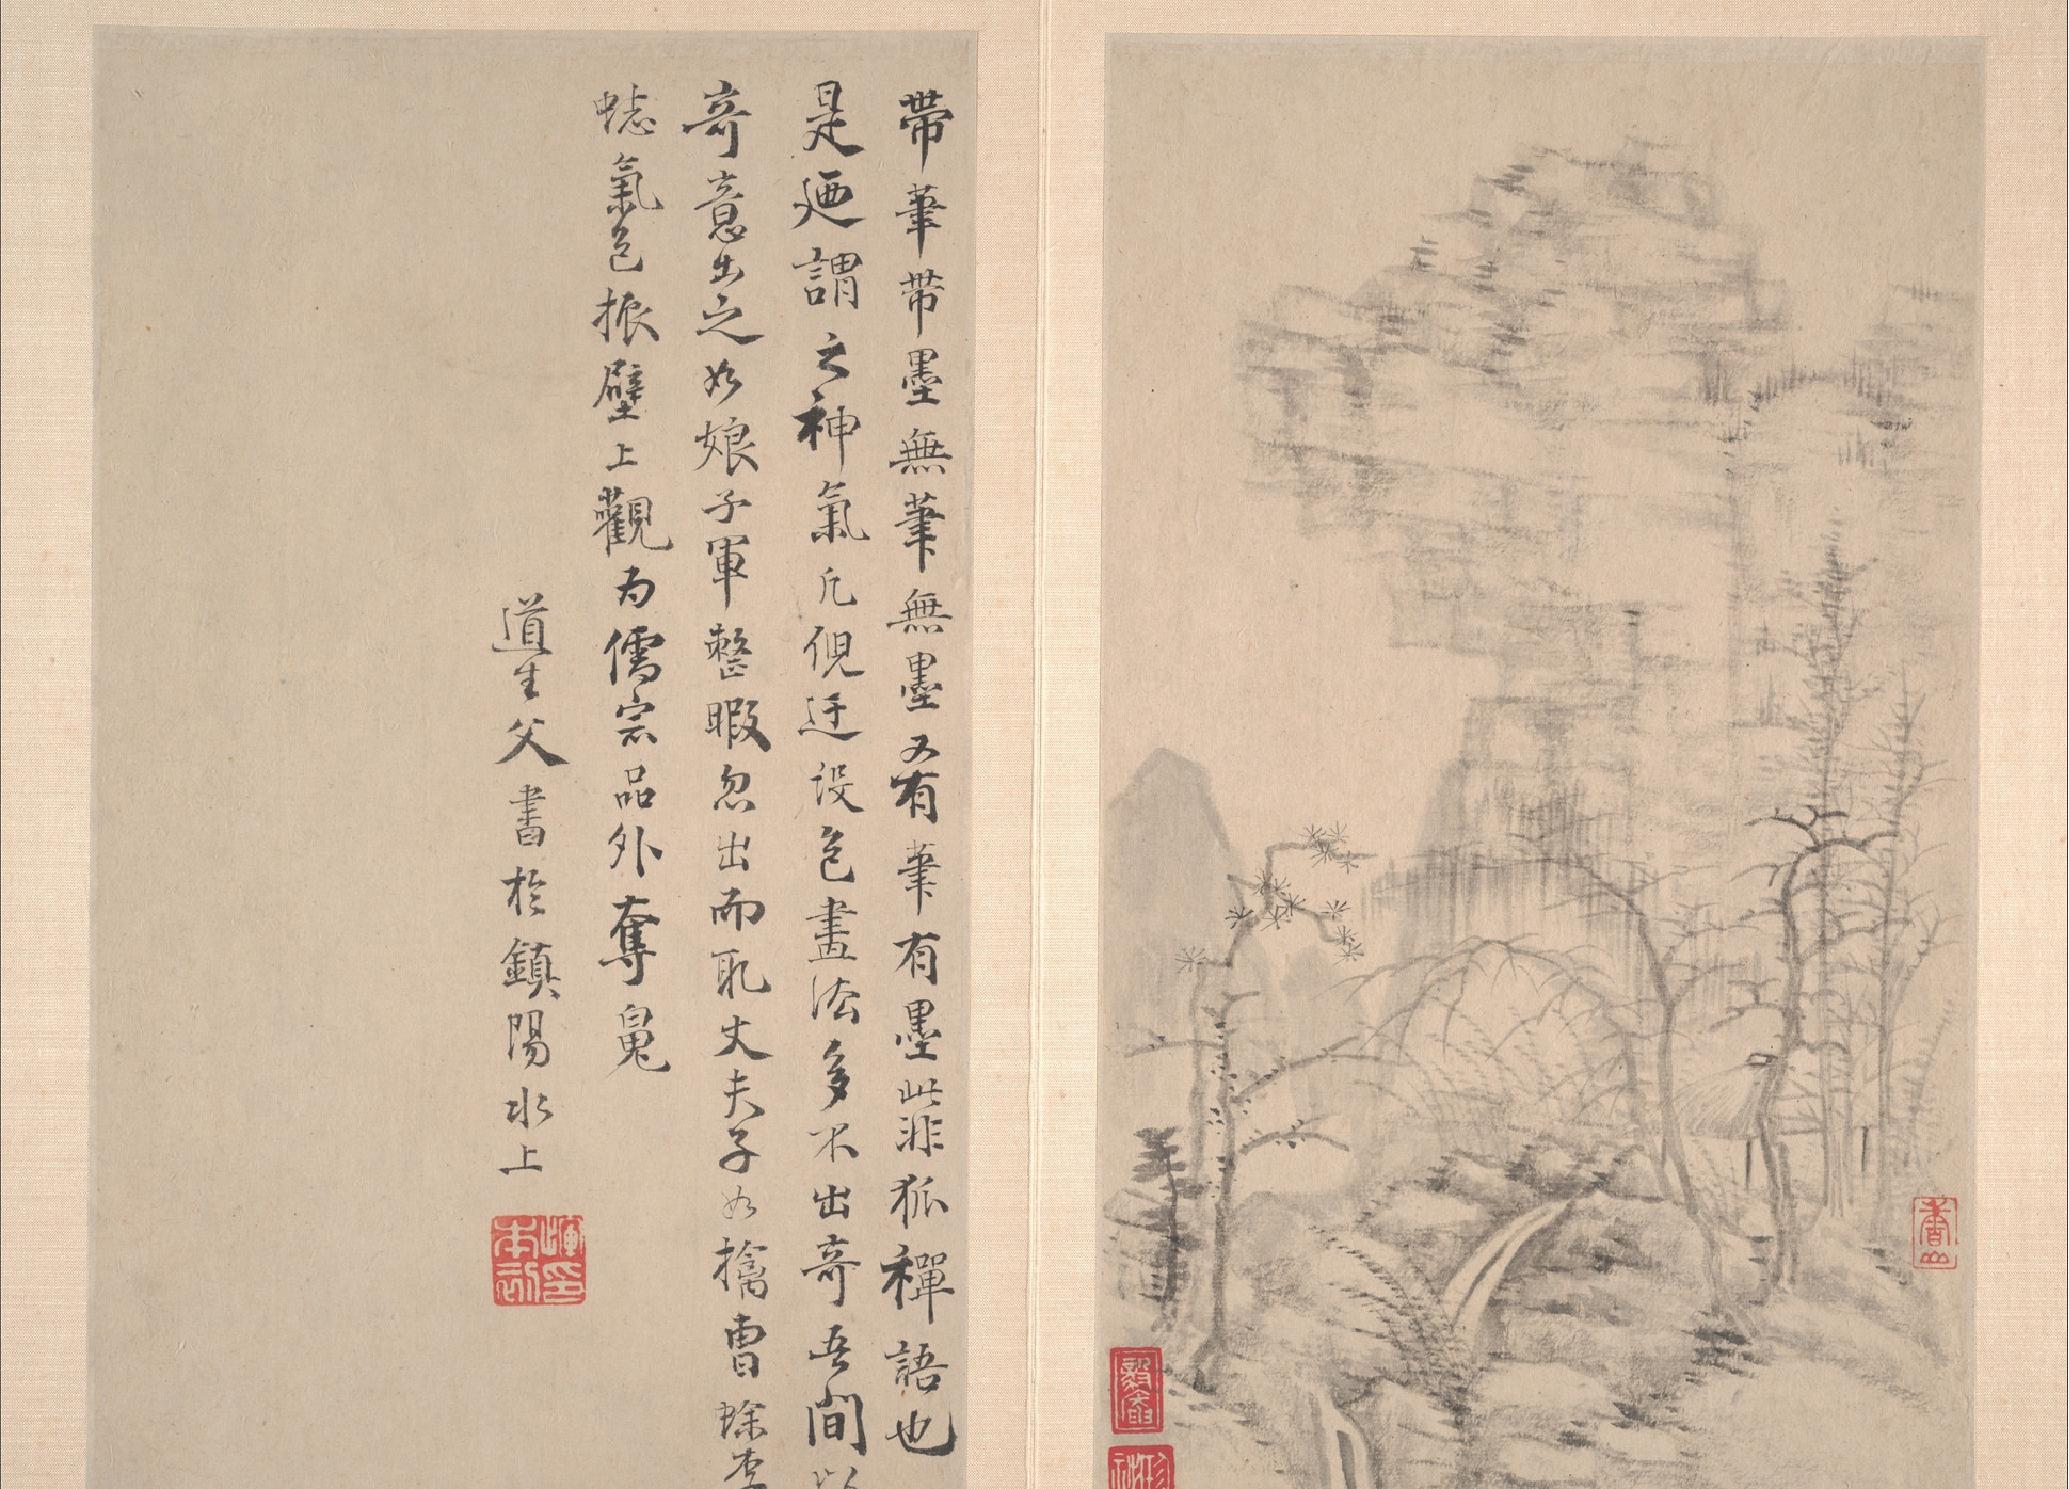 帶筆帶墨無筆無墨又有筆有墨此非狐禪語也
是廼謂之神氣凡倪迂設色畫法多不出奇吾間以
奇意出之如娘子軍整暇忽出而恥丈夫子如擒曹蜍李
志氣色振壁上觀为儒宗品外奪魄
道生父書於鎮陽水上
惲本初印
香山